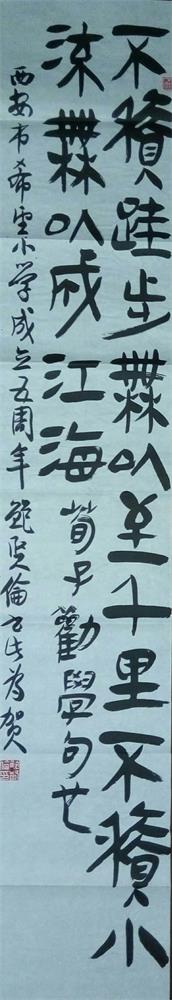 不積跬步無以至千里不積小
流無以成江海荀子勸學句也
西安市希望小学成立五周年鲍贤倫書此為賀